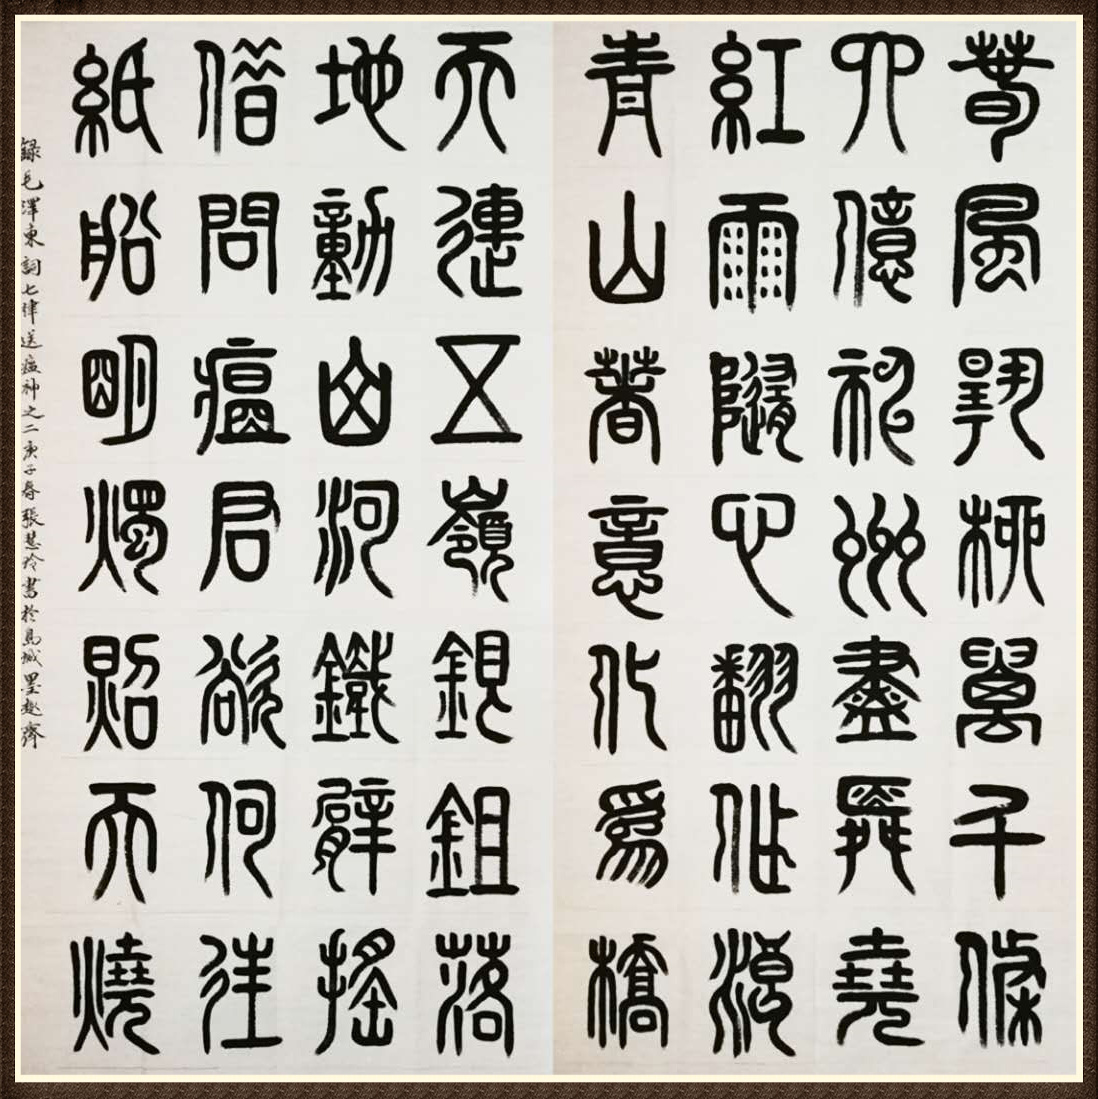 春風楊柳萬千條
六億神州盡舜堯
紅雨隨心翻作浪
青山著意化爲橋
天連五嶺銀鉏落
地動山河鐵臂搖
借問瘟君欲何往
紙船明燭照天燒
録毛澤東詞七律送瘟神之二庚子春張慧玲書於島城墨趣齋